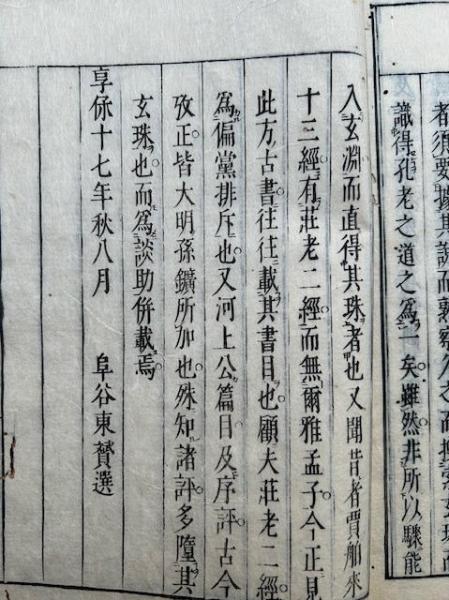 都須要據其說而熟察久之而擬索玄珠而
識得孔老之道之爲一矣雖然非所以驟能
入玄淵而直得其珠者也又聞昔者賈舶來
十三經有莊老二經而無爾雅孟子今正見
此方古書往往載其書目也顧夫莊老二經
爲偏黨排斥也又河上公篇目及序評古今
攷正皆大明孫鑛所加也殊知諸評多墮其
玄珠也而爲談助併載焉
享保十七年秋八月 阜谷東贇選